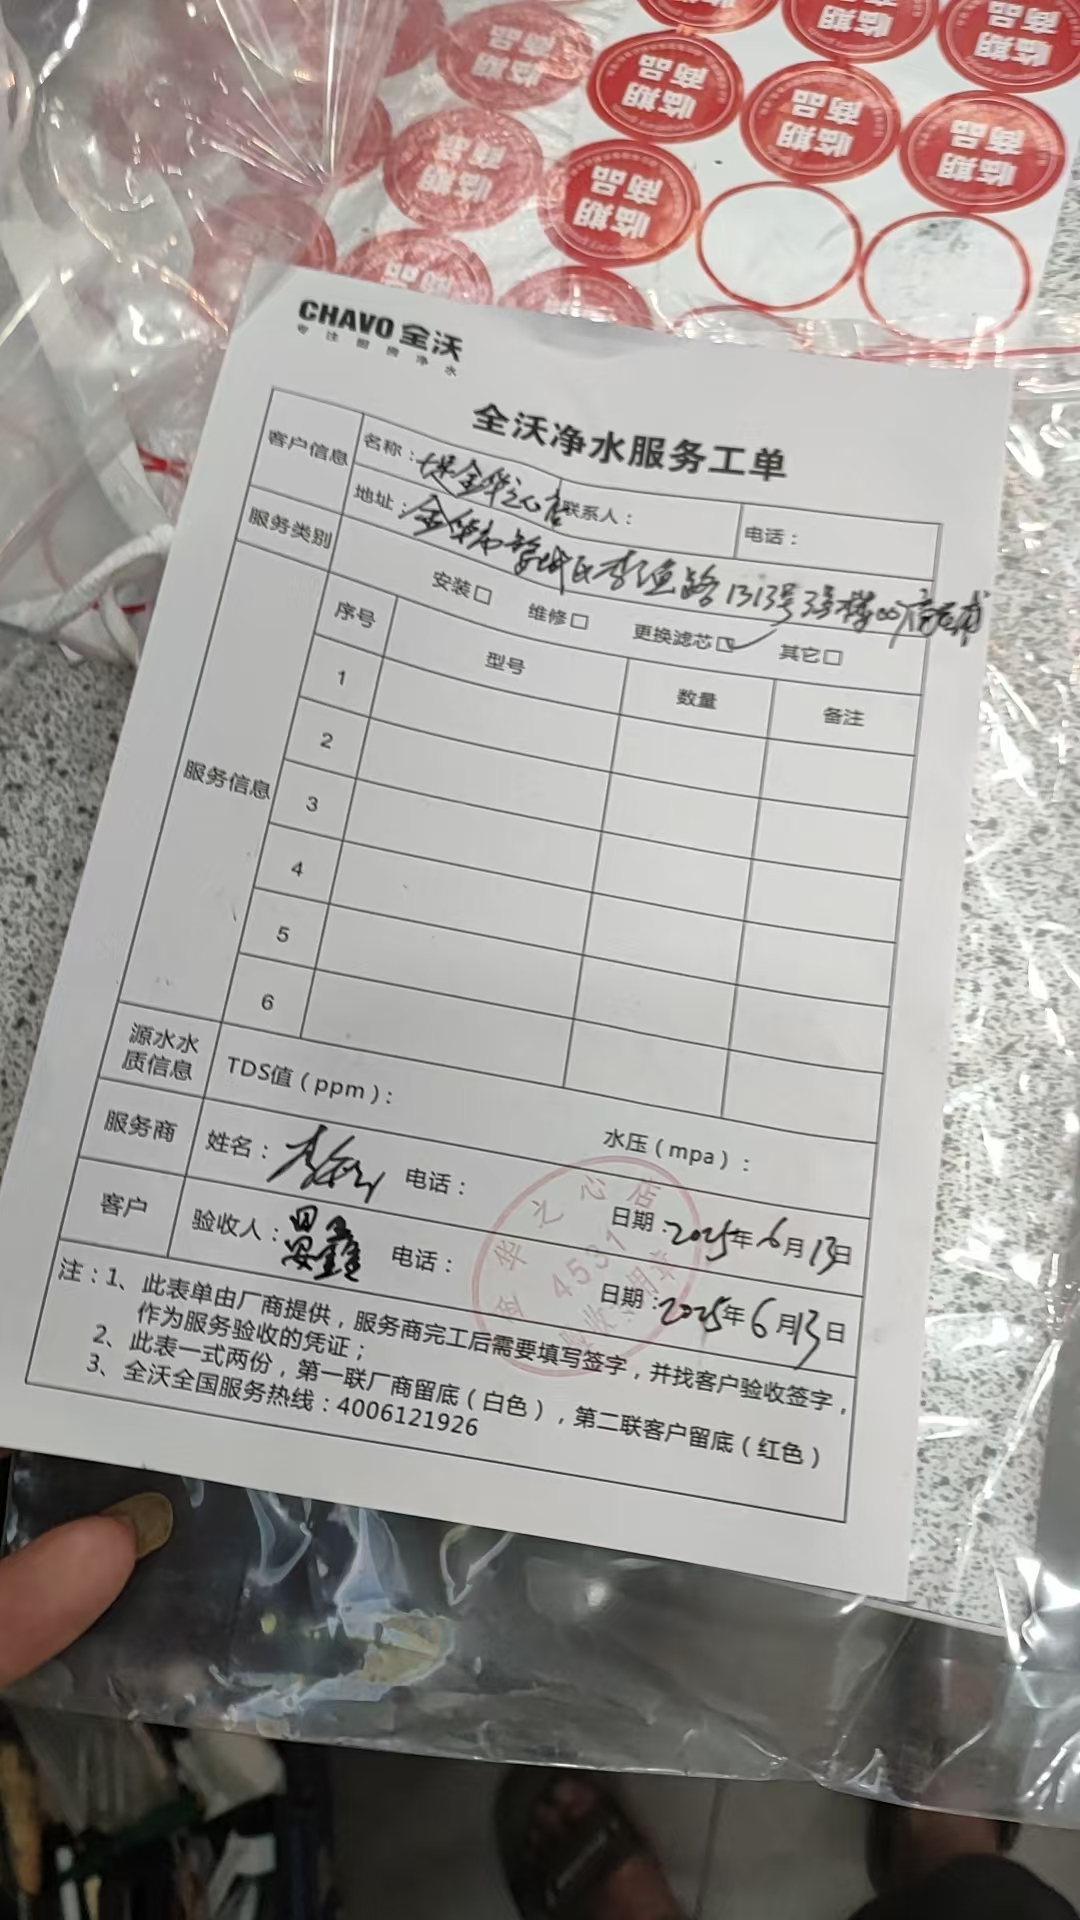 临期
商品
CHAVO 全沃
专注厨房净水
全沃净水服务工单
客户信息
名称：
金华之心店
联系人：
电话：
地址：
路1313号3号楼
服务类别
安装□ 维修□ 更换滤芯☑ 其它□
服务信息
序号 型号 数量 备注
1
2
3
4
5
6
源水水质信息
TDS值（ppm）： 水压（mpa）：
服务商 姓名： 电话： 日期：2025年6月13日
客户 验收人： 电话： 日期：2025年6月13日
金华之心店
4531
验收专用章
注：1、此表单由厂商提供，服务商完工后需要填写签字，并找客户验收签字，
作为服务验收的凭证；
2、此表一式两份，第一联厂商留底（白色），第二联客户留底（红色）
3、全沃全国服务热线：4006121926